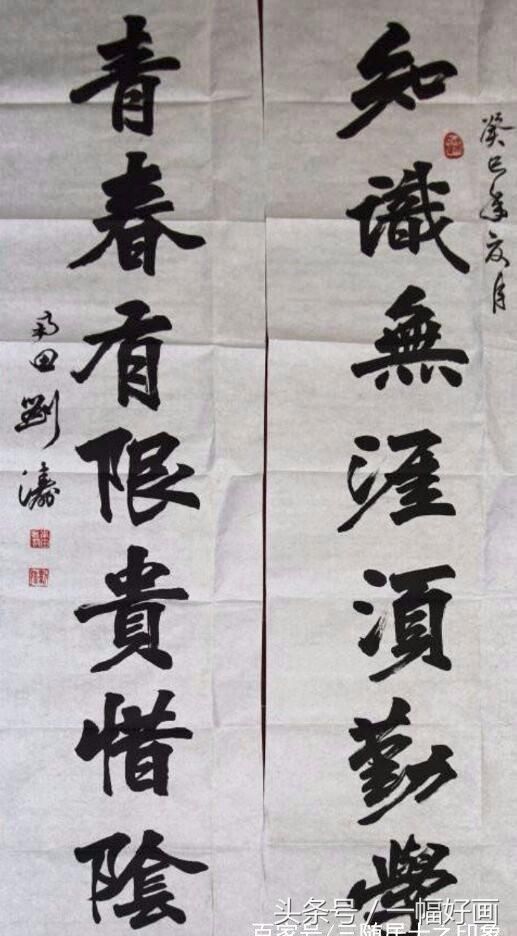 癸巳年夏月
知識無涯須勤學
青春有限貴惜陰
田劉濤
头条号 / 一幅好画
百家号/三随居士之印象